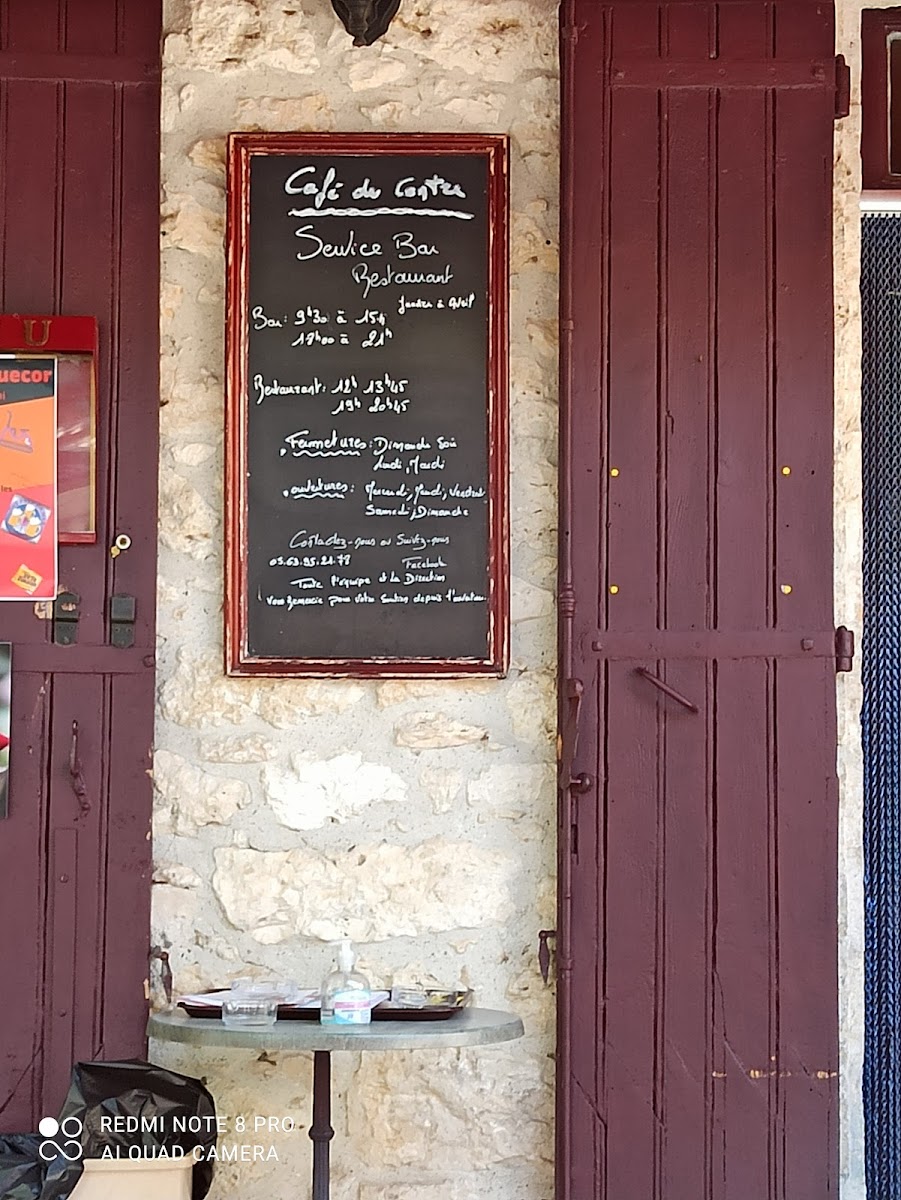 Café du Centre
Service Bar
Restaurant
Janvier à Avril
Bar: 9h30 à 15h
17h00 à 21h
Restaurant: 12h 13h45
19h 20h45
Fermetures: Dimanche Soir
Lundi, Mardi
ouvertures: Mercredi, Jeudi, Vendredi
Samedi, Dimanche
Contactez-nous ou Suivez-nous
05.63.95.21.78 Facebook
Toute l'équipe et la Direction
Vous Remercie pour votre Soutien depuis l'ouverture
U
uecor
REDMI NOTE 8 PRO
AI QUAD CAMERA